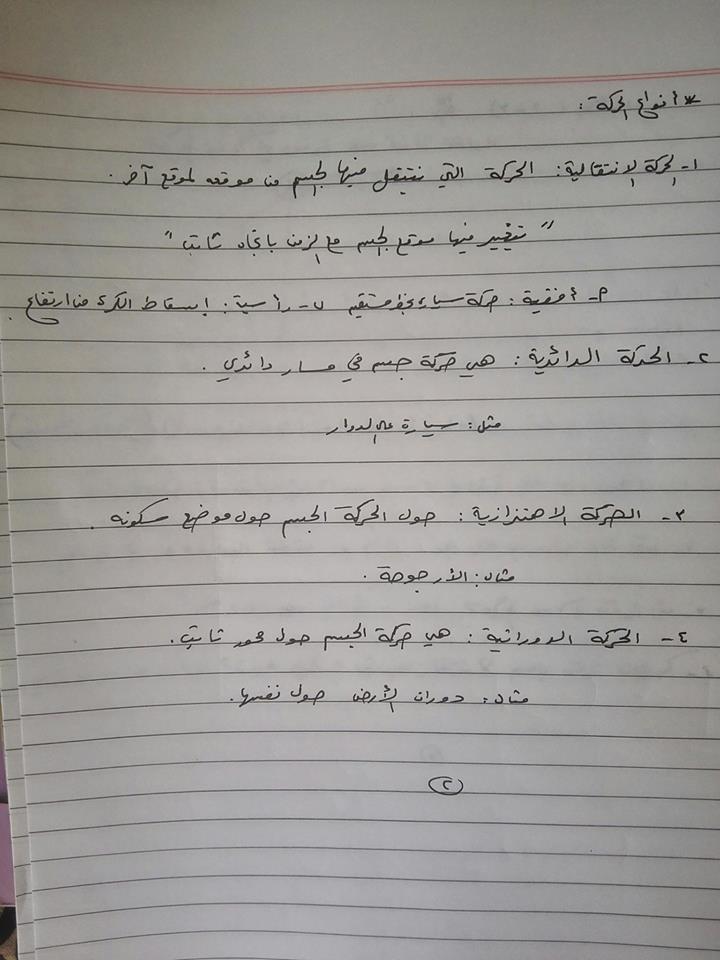 * أنواع الحركة :
١- الحركة الإنتقالية : الحركة التي ينتقل فيها الجسم من موقعه لموقع آخر .
" تغيير فيها موقع الجسم مع الزمن باتجاه ثابت "
أفقية : حركة سيارة بخط مستقيم ٧- رأسية : إسقاط الكرة من ارتفاع .
٢- الحركة الدائرية : هي حركة جسم في مسار دائري .
مثل : سيارة على الدوار
٣- الحركة الاهتزازية : حول الحركة الجسم حول موضع سكونه .
مثال : الأرجوحة .
٤- الحركة الدورانية : هي حركة الجسم حول محور ثابت .
مثال : دوران الأرض حول نفسها .
٢